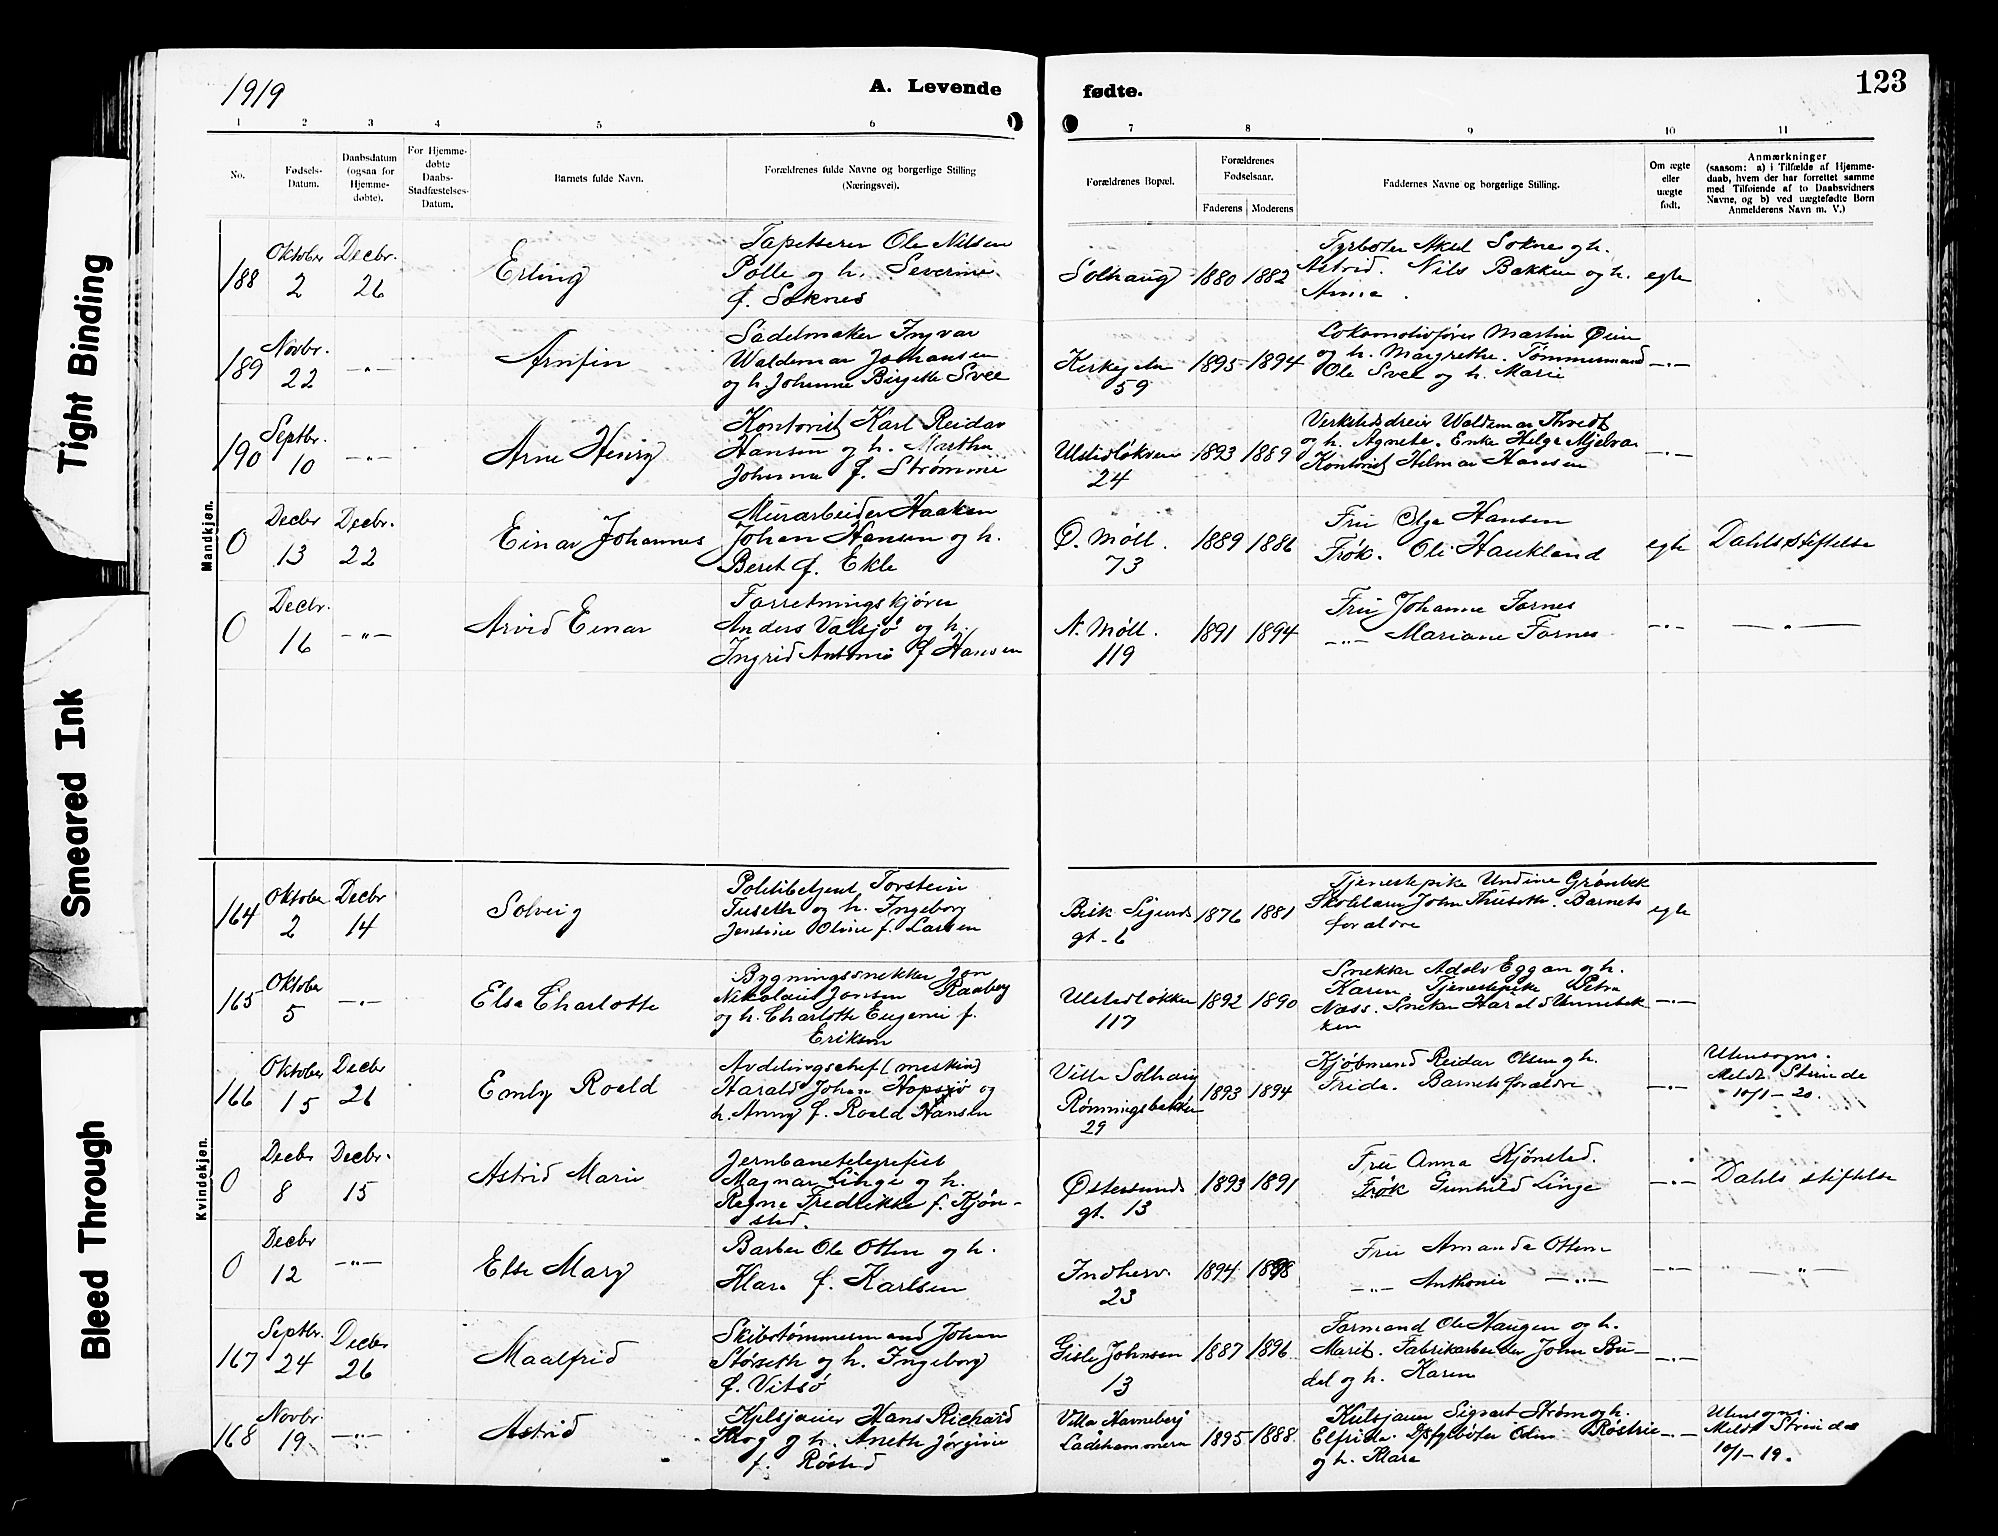 1919
A. Levende
fødte.
123
1
2
3
4
5
6
7
8
9
10
11
No.
Fødsels-
Datum.
Daabsdatum
(ogsaa for
Hjemme-
døbte).
For Hjemme-
døbte
Daabs-
Stadfæstelses-
Datum.
Barnets fulde Navn.
Forældrenes fulde Navne og borgerlige Stilling
(Næringsvei).
Forældrenes Bopæl.
Forældrenes
Fødselsaar.
Faderens
Moderens
Faddernes Navne og borgerlige Stilling.
Om ægte
eller
uægte
født.
Anmærkninger
(saasom: a) i Tilfælde af Hjemme-
daab, hvem der har forrettet samme
med Tilføiende af to Daabsvidners
Navne, og b) ved uægtefødte Børn
Anmelderens Navn m. V.)
Tight Binding
Smeared Ink
Bleed Through
Mandkjøn.
188
Oktober
2
Decbr.
26
Erling
Tapetserer Ole Nilsen
Polle og h. Severine
f. Soknes
Solhaug
1880
1882
Fyrbøter Aksel Soknes og h.
Astrid. Nils Bakken og h.
Anna.
egte
189
Novbr.
22
—"—
Arnfin
Sadelmaker Ingvar
Waldemar Johansen
og h. Johanne Birgitte Svee
Kirkegaten
59
1895
1894
Lokomotivfører Martin Øien
og h. Margrethe. Tømmermand
Ole Svee og h. Marie
—"—
190
Septbr.
10
—"—
Arne Henry
Kontorist Karl Reidar
Hansen og h. Martha
Johanna f. Strømme
Ulstadløkken
24
1893
1889
Verkstedsdreier Waldemar
og h. Agnete. Enke Helga
Kontorist Hilmar Hansen
—"—
0
Decbr
13
Decbr.
22
Einar Johannes
Murarbeider Haaken
Johan Hansen og h.
Beret f. Ekle
Ø. Møll.
73
1889
1886
Fru Olga Hansen
Frøk. Oli Haukland
egte
Dahls stiftelse
0
Decbr.
16
—"—
Arvid Einar
Forretningskjører
Anders Valsjø og h.
Ingrid Antonie f. Hansen
N. Møll.
119
1891
1894
Fru Johanna Fornes
—"— Mariane Fornes.
—"—
— " —
Kvindekjøn.
164
Oktober
2
Decbr
14
Solveig
Politibetjent Torstein
Tuseth og h. Ingeborg
Jensine Oline f. Larsen
Bisk Sigurds
gt. 6
1876
1881
Tjenestepike Undine Grønbek
Skolelærer John Thuseth. Barnets
forældre
egte
165
Oktober
5
—"—
Elsa Charlotte
Bygningssnekker Jon
Nikolaus Jonsen Raaberg
og h. Charlotte Eugenie f.
Erikson
Ulstadløkken
117
1892
1890
Snekker Adolv Eggan og h.
Karen. Tjenestepike Petra
Næss. Snekker Harald Unnebek
ken
—"—
166
Oktober
15
Decbr
26
Emly Roald
Avdelingschef (maskin)
Harald Johan Hopsjø og
h. Anny f. Roald Hansen
Villa Solhaug
Rønningsbakken
29
1893
1894
Kjøbmand Reidar Olsen og h.
Frida. Barnets forældre
—"—
Utensogns.
Meldt Strinda
10/1-20.
0
Decbr
8
Decbr.
15
Astrid Marie
Jernbanetelegrafist
Magnar Linge og h.
Regna Fredrikke f. Kjøn-
sted.
Østersunds
gt. 13
1893
1891
Fru Anna Kjønsted.
Frøk Gunhild Linge
—"—
Dahls stiftelse
0
Decbr
12
—"—
Else Mary
Barber Ole Ottem og h.
Klara f. Karlsen
Indherv.
23
1894
1888
Fru Amanda Ottem
—"— Anthonie —"—
—"—
" — " —
167
Septbr.
24
Decbr
26
Maalfrid
Skibstømmermand Johan
Størseth og h. Ingeborg
f. Vitsø
Gisle Johnsen
13
1887
1896
Formand Ole Haugen og h.
Marit. Fabrikarbeider John Bu-
dal og h. Karen
—"—
168
Novbr.
19
—"—
Astrid
Kjelsjauer Hans Richard
Krog og h. Aneth Jørgine
f. Røsted
Villa Havneberg
Ladehammeren
1895
1888.
Kulsjauer Sigvart Strøm og h.
Elfrida. Odin
og h. Klara
—"—
Utensogns.
Meldt Strinda
10/1-19.